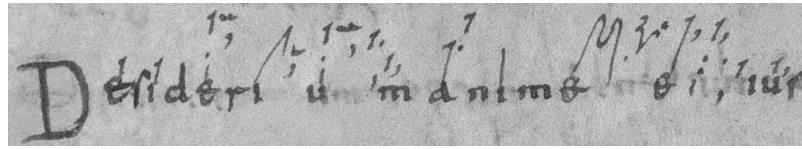 Desiderium anime eius